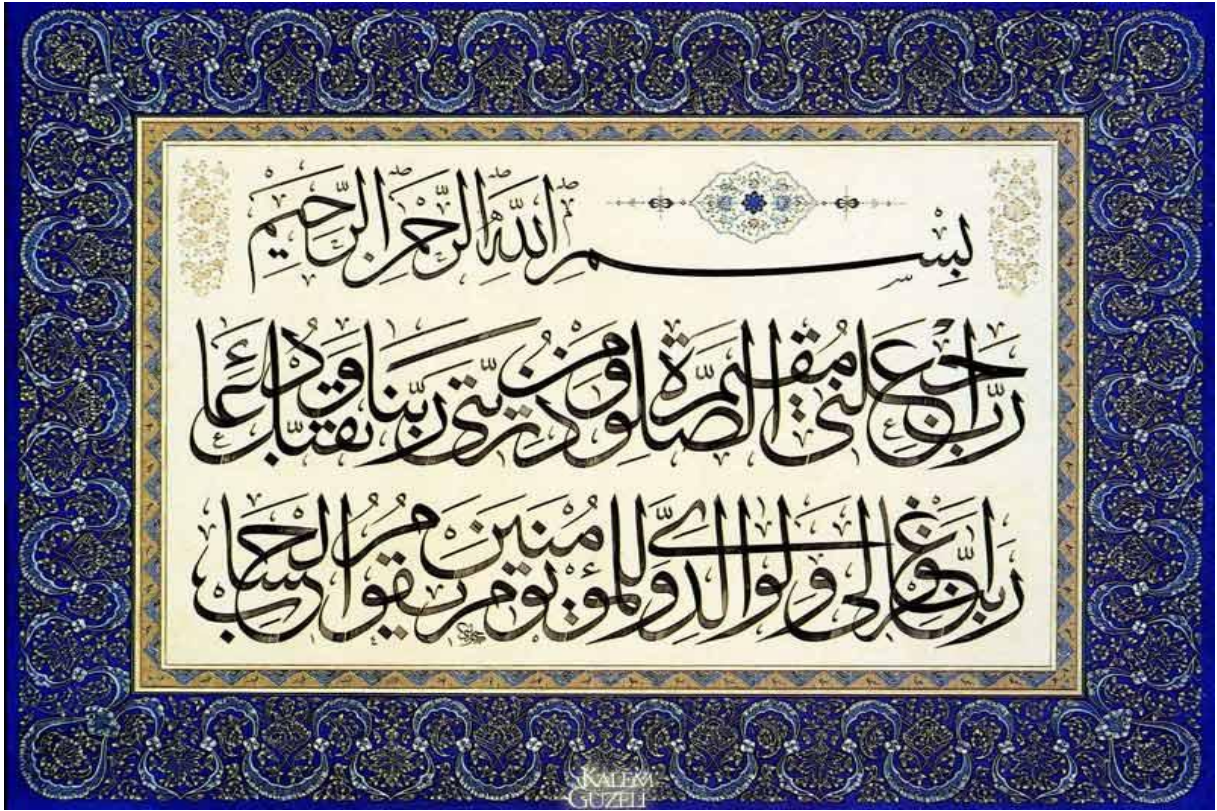 بِسْمِ اللّٰهِ الرَّحْمٰنِ الرَّحِيمِ
رَبِّ اجْعَلْنِي مُقِيمَ الصَّلٰوةِ وَمِنْ ذُرِّيَّتِي رَبَّنَا وَتَقَبَّلْ دُعَاءِ
رَبَّنَا اغْفِرْ لِي وَلِوَالِدَيَّ وَلِلْمُؤْمِنِينَ يَوْمَ يَقُومُ الْحِسَابُ
KALEM
GÜZELİ